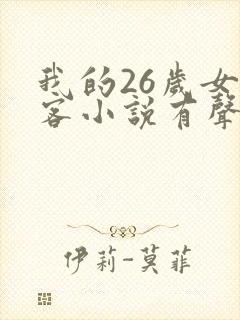 我的26歲女
客小說有聲
伊莉-莫菲